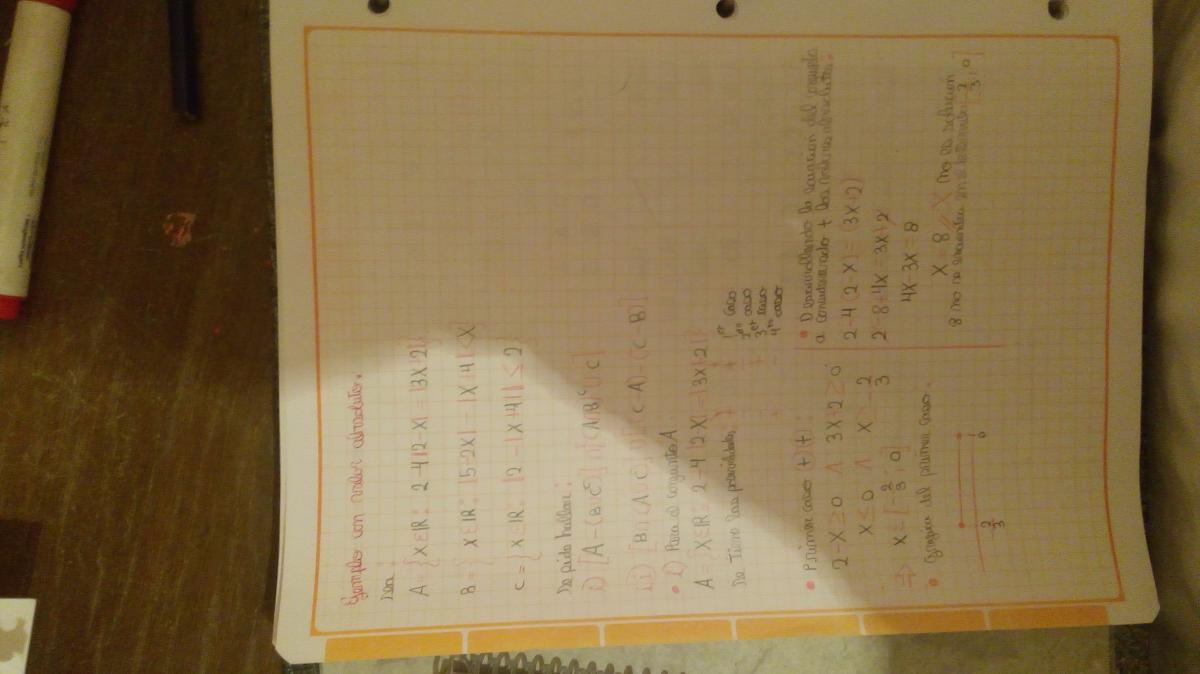 Ejemplo con valor absoluto.
Sea:
A = {X ∈ IR: 2-4|2-X| = |3X+2|}
B = { X ∈ IR: |5-2X| - |X+4| < X}
C = { X ∈ IR: |2 - |X+4|| ≤ 2}
Se pide hallar:
i) [A - (B∪C)] ∩ [(A∩B)ᶜ ∪ C]
ii) [B∩(A∪C)
(C-A) - (C-B)]
• i) Para el conjunto A
A = {X ∈ IR: 2-4|2-X| = |3X+2|}
Se Tiene las posibilidades
1er caso
2do caso
3er caso
4to caso
• Primer caso + y +:
2-X ≥ 0 ∧ 3X+2 ≥ 0
X ≤ 0 ∧ X ≥ -2/3
⇒ X ∈ [-2/3, 0]
• Grafica del primer caso.
2/3 0
• Desarrollando la ecuacion del conjunto
a
+ los valores absolutos.
2-4(2-X) = (3X+2)
2-8+4X = 3X+2
4X-3X = 8
X = 8 // X (no es solucion
8 no se encuentra en el intervalo [-2/3, 0]